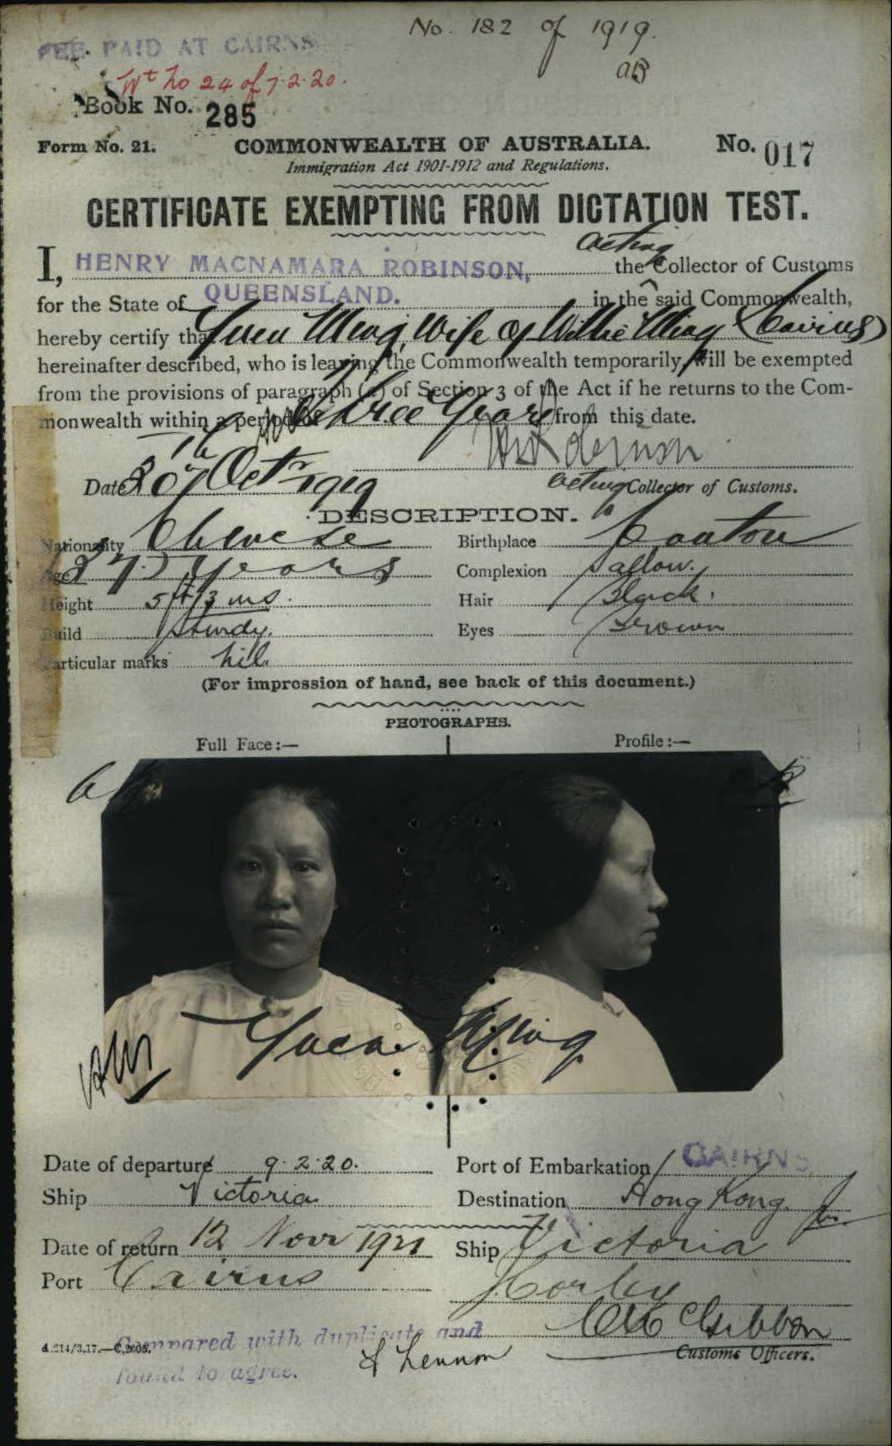 No. 182 of 1919.
FEE PAID AT CAIRNS
aB
Wt no 24 of 7.2.20.
Book No. 285
Form No. 21.
COMMONWEALTH OF AUSTRALIA.
No. 017
Immigration Act 1901-1912 and Regulations.
CERTIFICATE EXEMPTING FROM DICTATION TEST.
acting
I, HENRY MACNAMARA ROBINSON, the Collector of Customs
for the State of QUEENSLAND. in the said Commonwealth,
hereby certify that Yuen Wife of Willie (Cairns)
hereinafter described, who is leaving the Commonwealth temporarily, will be exempted
from the provisions of paragraph (a) of Section 3 of the Act if he returns to the Com-
monwealth within a period of three years from this date.
Date 30th Octr 1919
acting Collector of Customs.
DESCRIPTION.
Nationality Chinese
Birthplace Canton
Age 37 years
Complexion Sallow.
Height 5 ft 3 ins.
Hair Black.
Build Sturdy.
Eyes Brown
Particular marks nil.
(For impression of hand, see back of this document.)
PHOTOGRAPHS.
Full Face:—
Profile:—
Date of departure 9.2.20.
Port of Embarkation CAIRNS
Ship Victoria
Destination Hong Kong.
Date of return 12 Novr 1921
Ship Victoria
Port Cairns
Compared with duplicate and
found to agree.
Lennon
Customs Officers.